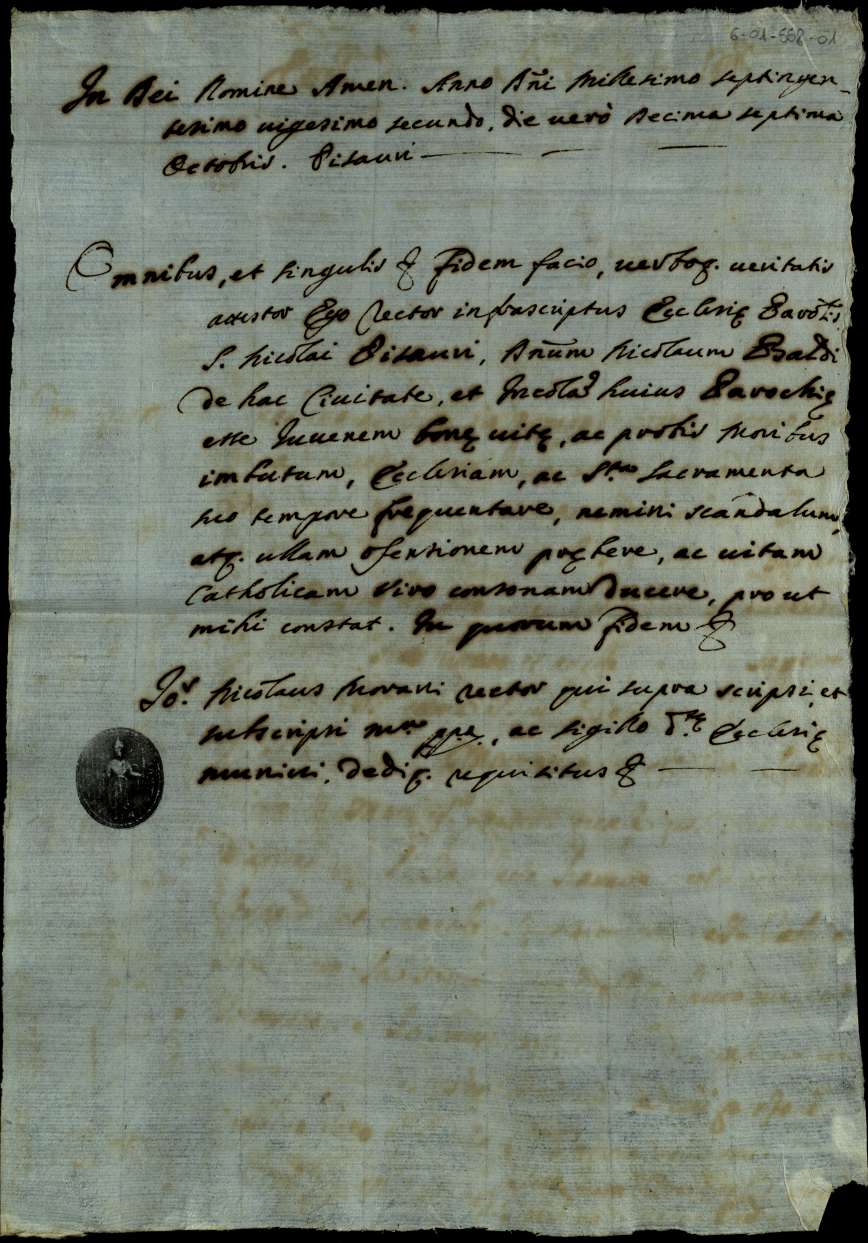 6-01-558-01
In Dei Nomine Amen. Anno Dñi Millesimo septingen-
tesimo uigesimo secundo, die uerò Decima septima
Octobris. Pisauri
Omnibus, et singulis & fidem facio, uerboq. ueritatis
attestor Ego Rector infrascriptus Ecclesię Paroclis
S. Nicolai Pisauri, Dñum Nicolaum
de hac Ciuitate, et Incolã huius Parochię
esse Iuuenem bonę uitę, ac probis moribus
imbutum, Ecclesiam, ac S.ta Sacramenta
suo tempore frequentare, nemini scandalum,
atq. ullam ofensionem prębere, ac uitam
Catholicam Viro consonam Ducere, pro ut
mihi constat. In quorum fidem &
Jo: Nicolaus Morani rector qui supra scripsi, et
subscripsi m.u ppa, ac sigillo d.tę Ecclesię
muniui, dediq. requisitus &